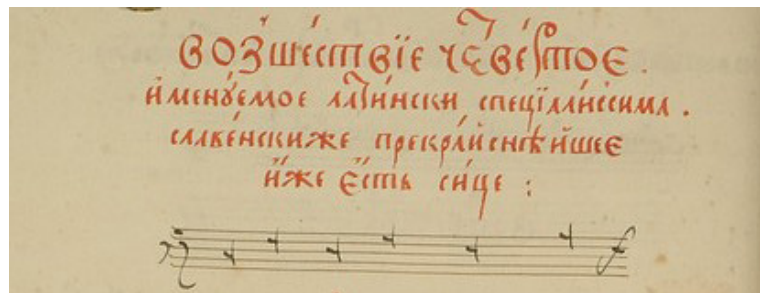 возшествїе че҃твертое .
и҆менꙋ́емое лати́нски спецїали́ссима .
славе́нскиже прекра́йснѣйшее
и҆́же є҆́сть си́це :